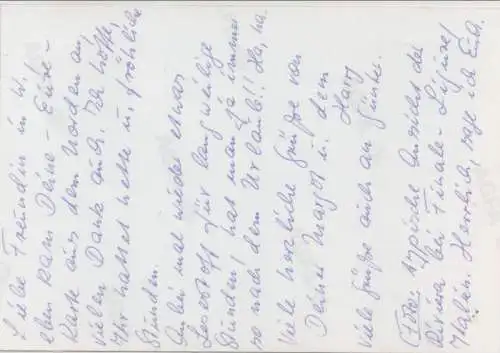 Liebe Freundin in W.!
eben kam Deine - Eure -
Karte aus dem Norden an,
vielen Dank auch! Ich hoffe,
Ihr hattet nette u. fröhliche
Stunden.
Anbei mal wieder etwas
Lesestoff für langweilige
Stunden! hat man ja immer
so nach dem Urlaub!! Ha, ha.
Viele herzliche Grüße von
Deiner Margot u. dem
Harry
Viele Grüße auch an Günter.
Foto: typische Ansicht der
Riviera bei Finale - Ligure/
Italien. Herrlich, sage ich Euch.